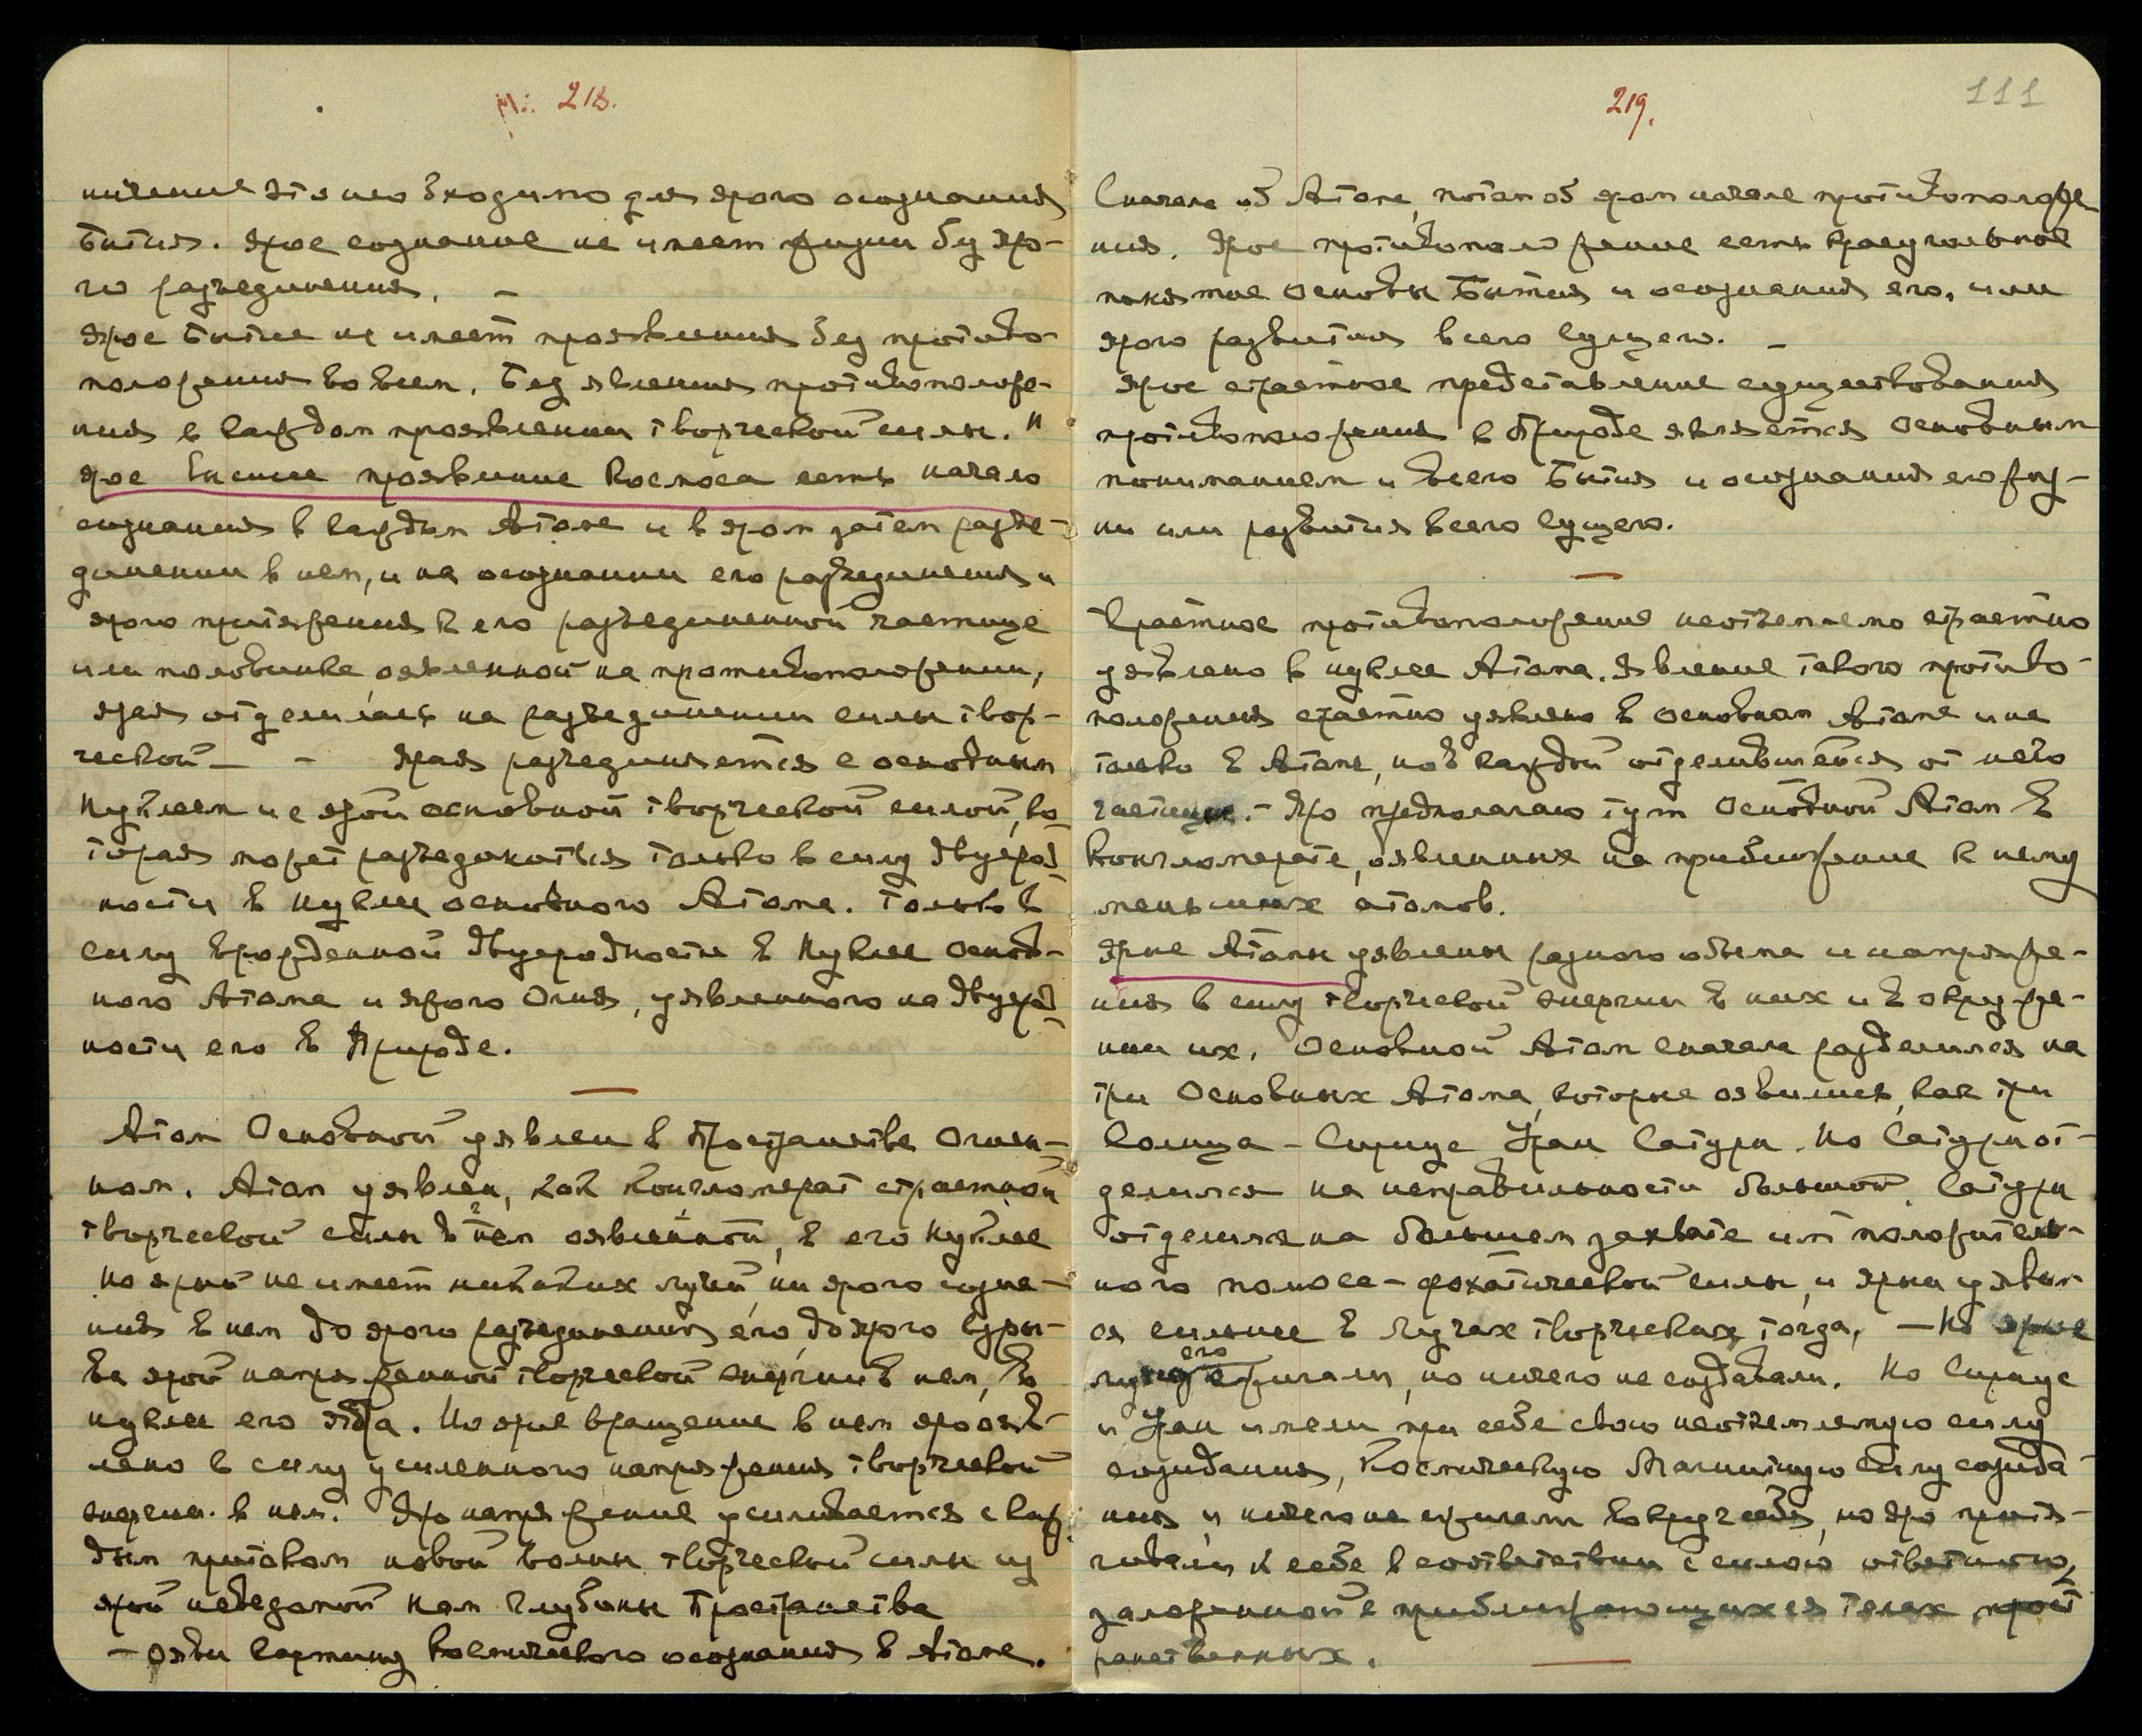 М.: 218.
ничение это необходимо для ярого осознания
Бытия. Ярое сознание не имеет жизни без яро-
го разъединения. –
Ярое Бытие не имеет проявления без противо-
положения во всем. Без явления противоположе-
ния в каждом проявлении творческой силы."
Ярое высшее проявление Космоса есть начало
сознания в каждом Атоме и в яром затем разъе-
динении в нем, и на осознании его разъединения и
ярого притяжения к его разъединенной частице
или половинке, оявленной на противоположении,
ярая отделилась на разъединении силы твор-
ческой – – Ярая разъединяется с основным
Нуклеем и с ярой основной творческой силой, ко-
торая может разъединиться только в силу двурод-
ности в нуклее основного Атома. Только в
силу врожденной двуродности в Нуклее основ-
ного Атома и ярого Огня, уявленного на двурод-
ности его в Природе.
Атом Основной уявлен в Пространстве Огнен-
ном. Атом уявлен, как конгломерат страстной
творческой силы в нем оявленной, в его Нуклее
но ярый не имеет никаких лучей, ни ярого созна-
ния в нем до ярого разъединения его, до ярого взры-
ва ярой напряженной творческой энергии в нем, в
нуклее его ядра. Но ярое вращение в нем яро ояв-
лено в силу усиленного напряжения творческой
энергии в нем. Яро напряжение усиливается с каж-
дым притоком новой волны творческой силы из
ярой неведомой нам глубины Пространства
– Яви картину космического осознания в Атоме.
219.
111
Сначала об Атоме, потом об яром начале противоположе-
ния. Ярое противоположение есть краеугольное
понятие Основы Бытия и осознания его, или
ярого развития всего Сущего. –
Ярое страстное представление существования
противоположения в Природе является Основным
пониманием и всего Бытия и осознания его жиз-
ни или развития всего Сущего.
Страстное противоположение неотъемлемо страстно
уявлено в нуклее Атома. Явление такого противо-
положения страстно уявлено в Основном Атоме и не
только в Атоме, но в каждой отделившейся от него
частице. – Яро предполагаю тут Основной Атом в
Конгломерате, оявленных на приближение к нему
меньших атомов.
Ярые Атомы уявлены разного объема и напряже-
ния в силу творческой энергии в них и в окруже-
нии их. Основной Атом сначала разделился на
три Основных Атома, которые оявились, как три
Солнца – Сириус Уран Сатурн. Но Сатурн от-
делился на неправильности большой. Сатурн
отделился на большем захвате им положитель-
ного полюса – фохатической силы, и ярый уявил-
ся сильнее в Лучах творческих тогда, – Но ярые
лучи его сжигали, но ничего не создавали. Но Сириус
и Уран имели при себе свою неотъемлемую силу
созидания, Космическую Магнитную Силу созида-
ния и ничего не сжигали вокруг себя, но яро притя-
гивали к себе в соответствии с силою ответною,
заложенной в приближающихся телах прост
ранственных.